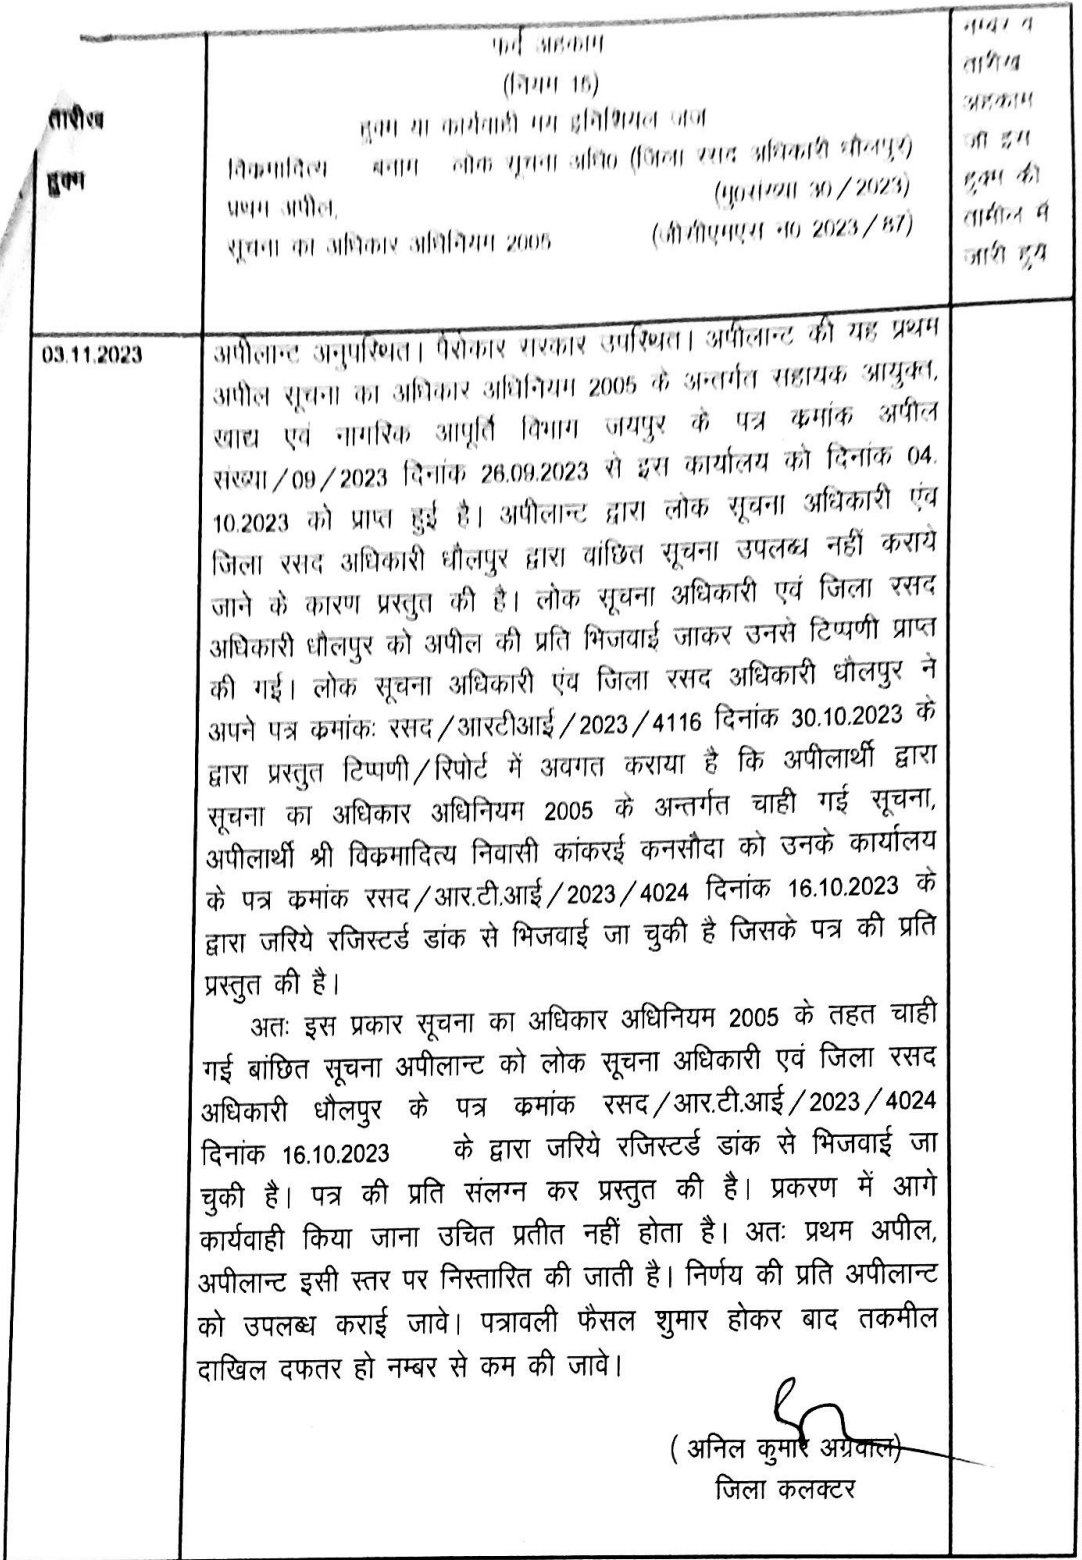 तारीख
हुक्म
फर्द अहकाम
(नियम 16)
हुक्म या कार्यवाही मय इनिशियल जज
विकमादित्य बनाम लोक सूचना अधि0 (जिला रसद अधिकारी धौलपुर)
प्रथम अपील, (मु0संख्या 30/2023)
सूचना का अधिकार अधिनियम 2005 (जीसीएमएस न0 2023/87)
नम्बर व
तारीख
अहकाम
जो इस
हुक्म की
तामील में
जारी हुये
03.11.2023
अपीलान्ट अनुपस्थित। पैरोकार सरकार उपस्थित। अपीलान्ट की यह प्रथम
अपील सूचना का अधिकार अधिनियम 2005 के अन्तर्गत सहायक आयुक्त,
खाद्य एवं नागरिक आपूर्ति विभाग जयपुर के पत्र कमांक अपील
संख्या/09/2023 दिनांक 26.09.2023 से इस कार्यालय को दिनांक 04.
10.2023 को प्राप्त हुई है। अपीलान्ट द्वारा लोक सूचना अधिकारी एंव
जिला रसद अधिकारी धौलपुर द्वारा वांछित सूचना उपलब्ध नहीं कराये
जाने के कारण प्रस्तुत की है। लोक सूचना अधिकारी एवं जिला रसद
अधिकारी धौलपुर को अपील की प्रति भिजवाई जाकर उनसे टिप्पणी प्राप्त
की गई। लोक सूचना अधिकारी एंव जिला रसद अधिकारी धौलपुर ने
अपने पत्र कमांकः रसद/आरटीआई/2023/4116 दिनांक 30.10.2023 के
द्वारा प्रस्तुत टिप्पणी/रिपोर्ट में अवगत कराया है कि अपीलार्थी द्वारा
सूचना का अधिकार अधिनियम 2005 के अन्तर्गत चाही गई सूचना,
अपीलार्थी श्री विकमादित्य निवासी कांकरई कनसौदा को उनके कार्यालय
के पत्र कमांक रसद/आर.टी.आई/2023/4024 दिनांक 16.10.2023 के
द्वारा जरिये रजिस्टर्ड डांक से भिजवाई जा चुकी है जिसके पत्र की प्रति
प्रस्तुत की है।
अतः इस प्रकार सूचना का अधिकार अधिनियम 2005 के तहत चाही
गई बांछित सूचना अपीलान्ट को लोक सूचना अधिकारी एवं जिला रसद
अधिकारी धौलपुर के पत्र कमांक रसद/आर.टी.आई/2023/4024
दिनांक 16.10.2023 के द्वारा जरिये रजिस्टर्ड डांक से भिजवाई जा
चुकी है। पत्र की प्रति संलग्न कर प्रस्तुत की है। प्रकरण में आगे
कार्यवाही किया जाना उचित प्रतीत नहीं होता है। अतः प्रथम अपील,
अपीलान्ट इसी स्तर पर निस्तारित की जाती है। निर्णय की प्रति अपीलान्ट
को उपलब्ध कराई जावे। पत्रावली फैसल शुमार होकर बाद तकमील
दाखिल दफतर हो नम्बर से कम की जावे।
(अनिल कुमार अग्रवाल)
जिला कलक्टर